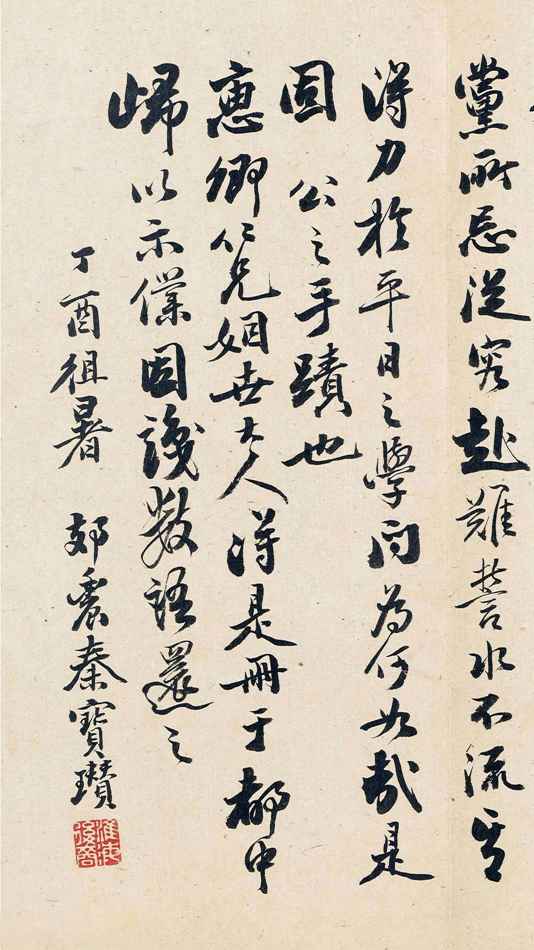 黨所忌從容赴難誓水不流其
得力於平日之學問為何如哉是
固 公之手蹟也
惠卿仁兄姻世大人得是冊于都中
歸以示僕因識數語還之
丁酉徂暑 秦寶瓚